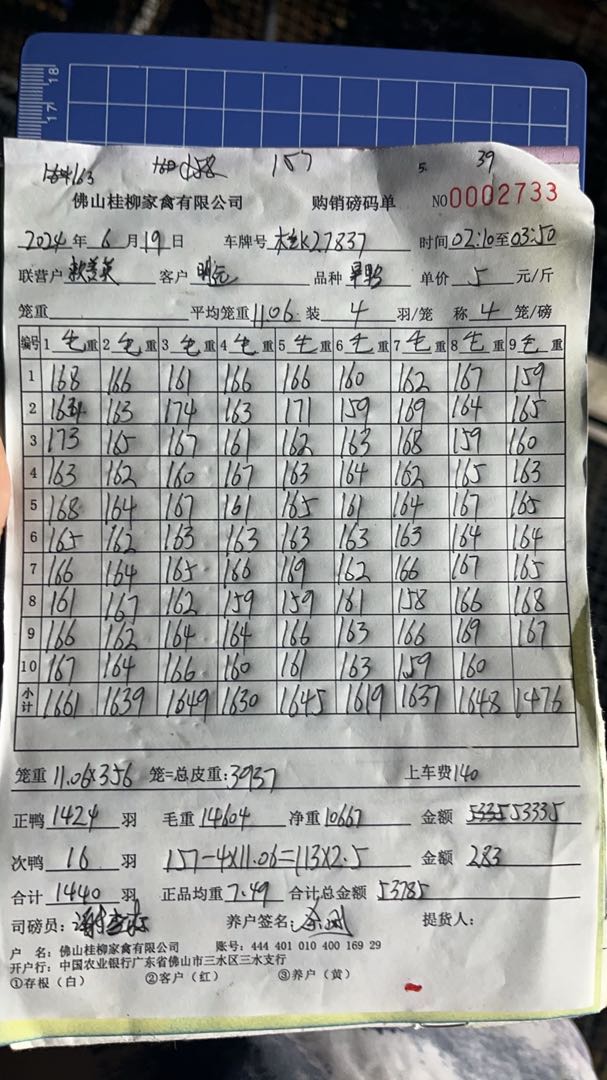 157 5. 39
佛山桂柳家禽有限公司 购销磅码单 NO0002733
2024年6月19日 车牌号 K27837 时间02:10至03:50
联营户 客户 明记 品种 单价 5 元/斤
笼重 平均笼重11.06 装 4 羽/笼 称 4 笼/磅
编号 1 毛重 2 毛重 3 毛重 4 毛重 5 毛重 6 毛重 7 毛重 8 毛重 9 毛重
1 168 166 161 166 166 160 162 167 159
2 163 174 163 171 159 169 164 165
3 173 165 167 161 162 163 168 159 160
4 163 162 160 167 163 164 162 165 163
5 168 164 167 161 165 161 164 167 165
6 165 162 163 163 163 163 163 164 164
7 166 164 165 166 169 162 166 167 165
8 161 167 162 159 159 161 158 166 168
9 166 162 164 164 166 163 166 169 167
10 167 164 166 160 161 163 159 160
小计 1661 1639 1649 1630 1645 1619 1637 1648 1476
笼重 11.06×356 笼=总皮重:3937 上车费140
正鸭 1424 羽 毛重 14604 净重 10667 金额 53335
次鸭 16 羽 157-4×11.06=113×2.5 金额 283
合计 1440 羽 正品均重 7.49 合计总金额 53785
司磅员: 养户签名: 提货人:
户 名: 佛山桂柳家禽有限公司 账号: 444 401 010 400 169 29
开户行: 中国农业银行广东省佛山市三水区三水支行
①存根（白） ②客户（红） ③养户（黄）